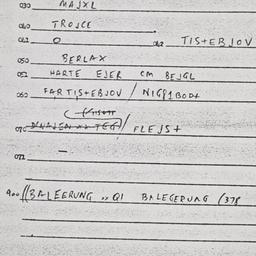 030 MAJXL
040 TROJCE
041 0 042 TISTEBJOV
050 BERLAX
051 HARTE EJER CM BEJGL
060 FARTISTEBJOV /
070 / FLEJST
071 —
900 // BALEERUNG " QI BALEGERUNG (378